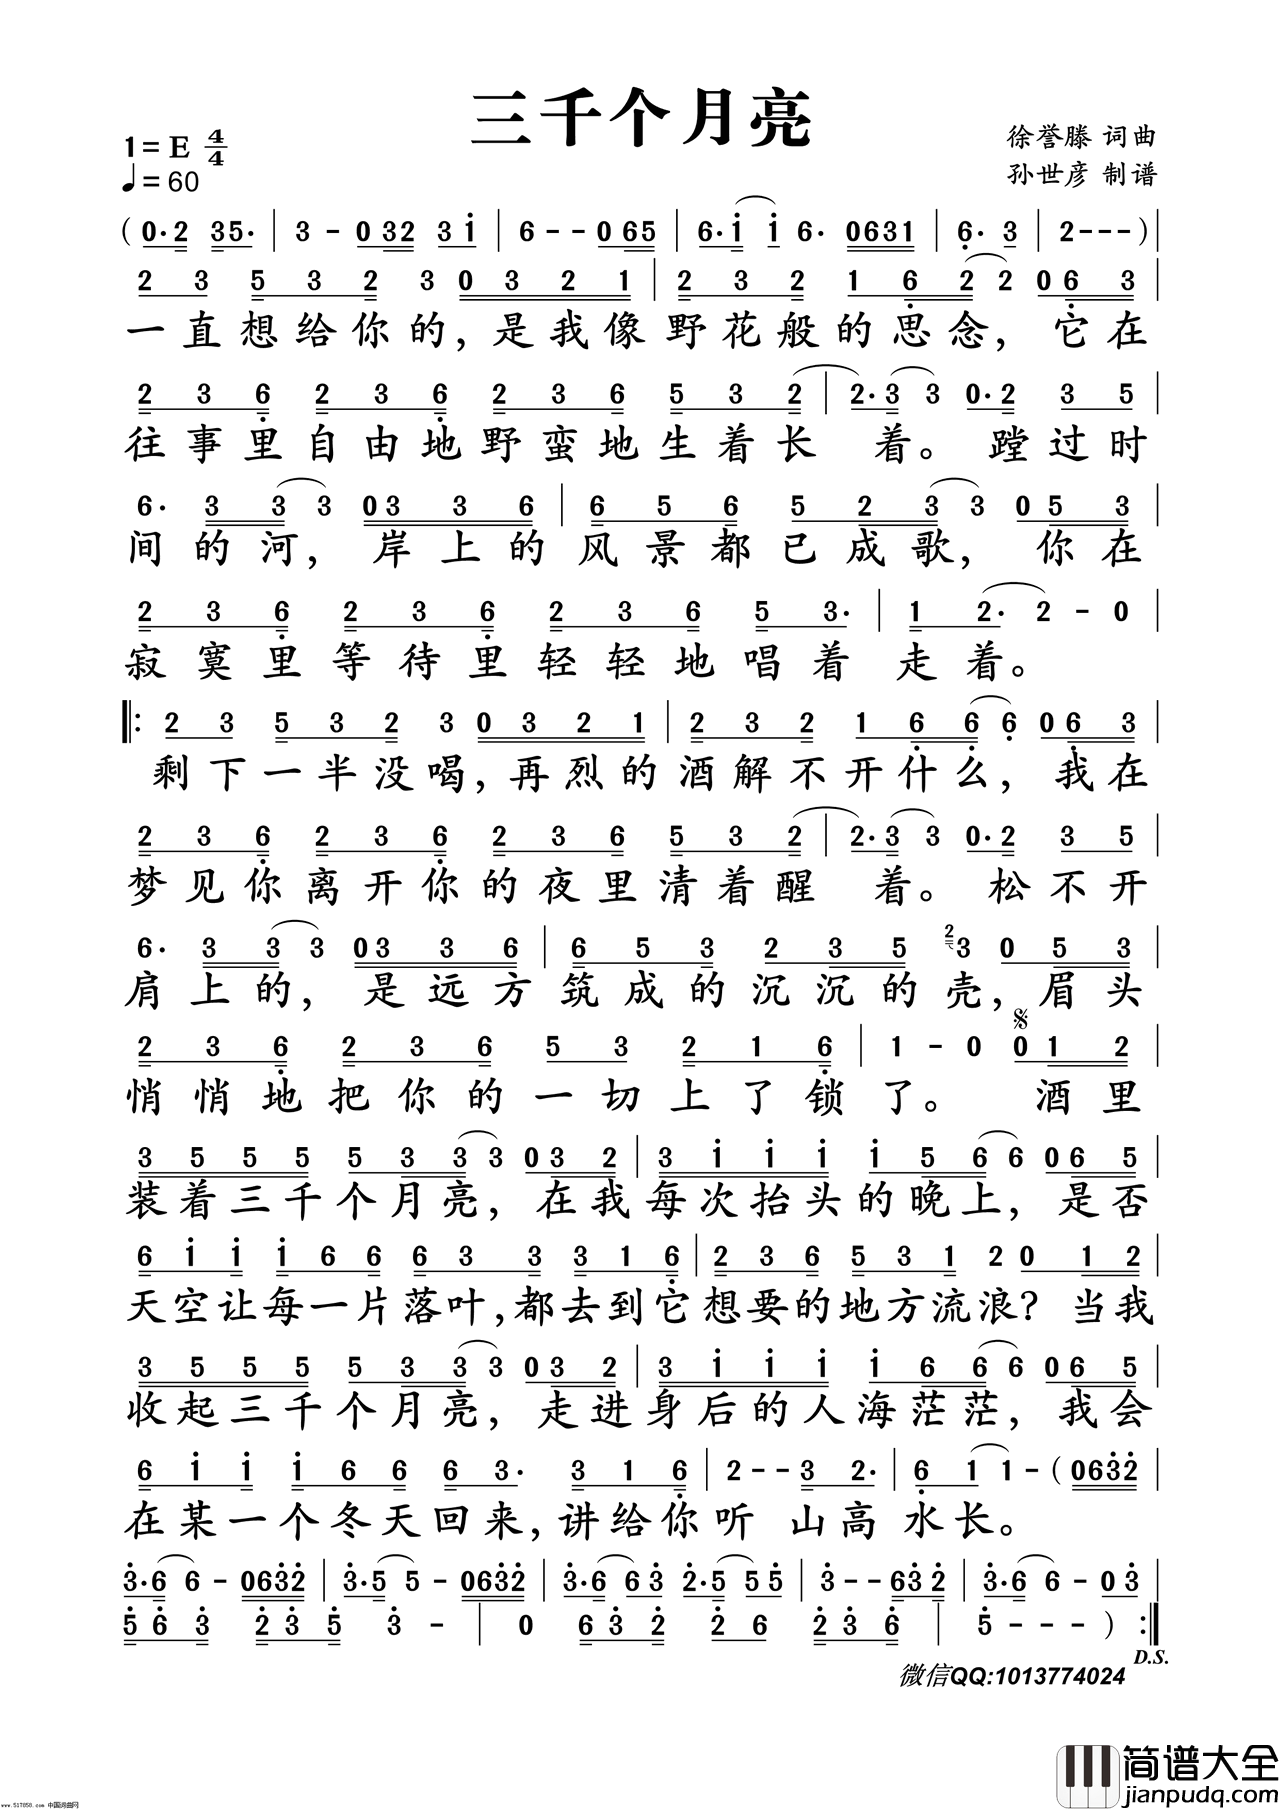 三千个月亮
1=E 4/4
♩=60
徐誉滕 词曲
孙世彦 制谱
(0·2 35· | 3 - 032 3i | 6 - - 065 | 6·i i 6· 0631 | 6· 3 | 2 - - - ) |
2 3 5 3 2 3 0 3 2 1 | 2 3 2 1 6 2 2 0 6 3 |
一直想给你的,是我像野花般的思念,它在
2 3 6 2 3 6 2 3 6 5 3 2 | 2·3 3 0·2 3 5 |
往事里自由地野蛮地生着长 着。蹚过时
6· 3 3 3 0 3 3 6 | 6 5 6 5 2 3 3 0 5 3 |
间的河,岸上的风景都已成歌,你在
2 3 6 2 3 6 2 3 6 5 3· | 1 2· 2 - 0 |
寂寞里等待里轻轻地唱着走着。
‖: 2 3 5 3 2 3 0 3 2 1 | 2 3 2 1 6 6 6 0 6 3 |
剩下一半没喝,再烈的酒解不开什么,我在
2 3 6 2 3 6 2 3 6 5 3 2 | 2·3 3 0·2 3 5 |
梦见你离开你的夜里清着醒 着。松不开
6· 3 3 3 0 3 3 6 | 6 5 3 2 3 5 2 3 0 5 3 |
肩上的,是远方筑成的沉沉的壳,眉头
2 3 6 2 3 6 5 3 2 1 6 | 1 - 0 0 1 2 |
悄悄地把你的一切上了锁了。 酒里
3 5 5 5 5 3 3 3 0 3 2 | 3 i i i i 5 6 6 0 6 5 |
装着三千个月亮,在我每次抬头的晚上,是否
6 i i i 6 6 6 3 3 3 1 6 | 2 3 6 5 3 1 2 0 1 2 |
天空让每一片落叶,都去到它想要的地方流浪?当我
3 5 5 5 5 3 3 3 0 3 2 | 3 i i i i 6 6 6 0 6 5 |
收起三千个月亮,走进身后的人海茫茫,我会
6 i i i 6 6 6 3· 3 1 6 | 2 - - 3 2· | 6 1 1 - (0632 |
在某一个冬天回来,讲给你听 山高 水长。
3·6 6 - 0632 | 3·5 5 - 0632 | 3·6 6 3 2·5 5 5 | 3 - - 63 2 | 3·6 6 - 0 3 |
5 6 3 2 3 5 3 - | 0 6 3 2 2 6 2 3 6 | 5 - - - ) :‖
D.S.
微信QQ:1013774024
简谱大全
jianpudq.com
www.517858.com 中国词曲网